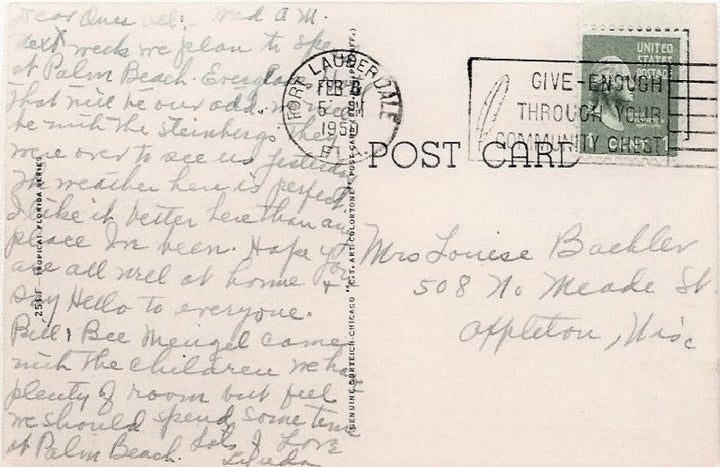 Dear Ones all: Wed A M.
next week we plan to spe
at Palm Beach. Everglades
That will be our add.
be with the Steinbergs they
were over to see us yesterday
The weather here is perfect
I like it better here than any
place I've been. Hope you
are all well at home &
say Hello to everyone.
Bill & Bee Mengel came
with the children we have
plenty of room but feel
we should spend some time
at Palm Beach. Lots of Love
Linda
251-F—TROPICAL FLORIDA SERIES
GENUINE CURTEICH-CHICAGO "C.T. ART-COLORTONE" POST CARD
FORT LAUDERDALE
FEB 8
PM
FLA
GIVE-ENOUGH
THROUGH YOUR
COMMUNITY CHEST
UNITED
STATES
POSTAGE
1 1
POST CARD
Mrs Louise Backler
508 No Meade St
Appleton, Wisc